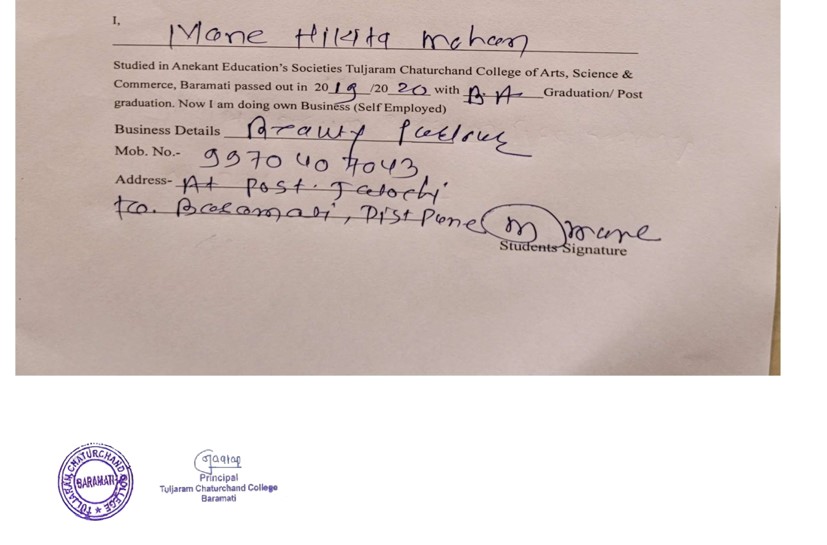 I,
Mane Nikita Mohan
Studied in Anekant Education's Societies Tuljaram Chaturchand College of Arts, Science &
Commerce, Baramati passed out in 2019 /2020 with B.A Graduation/ Post
graduation. Now I am doing own Business (Self Employed)
Business Details Beauty Parlour
Mob. No.- 9970 40 7043
Address- At post. Jalochi
ta. Baramati, Dist Pune
M mane
Students Signature
TULJARAM CHATURCHAND COLLEGE
BARAMATI
Jagtap
Principal
Tuljaram Chaturchand College
Baramati